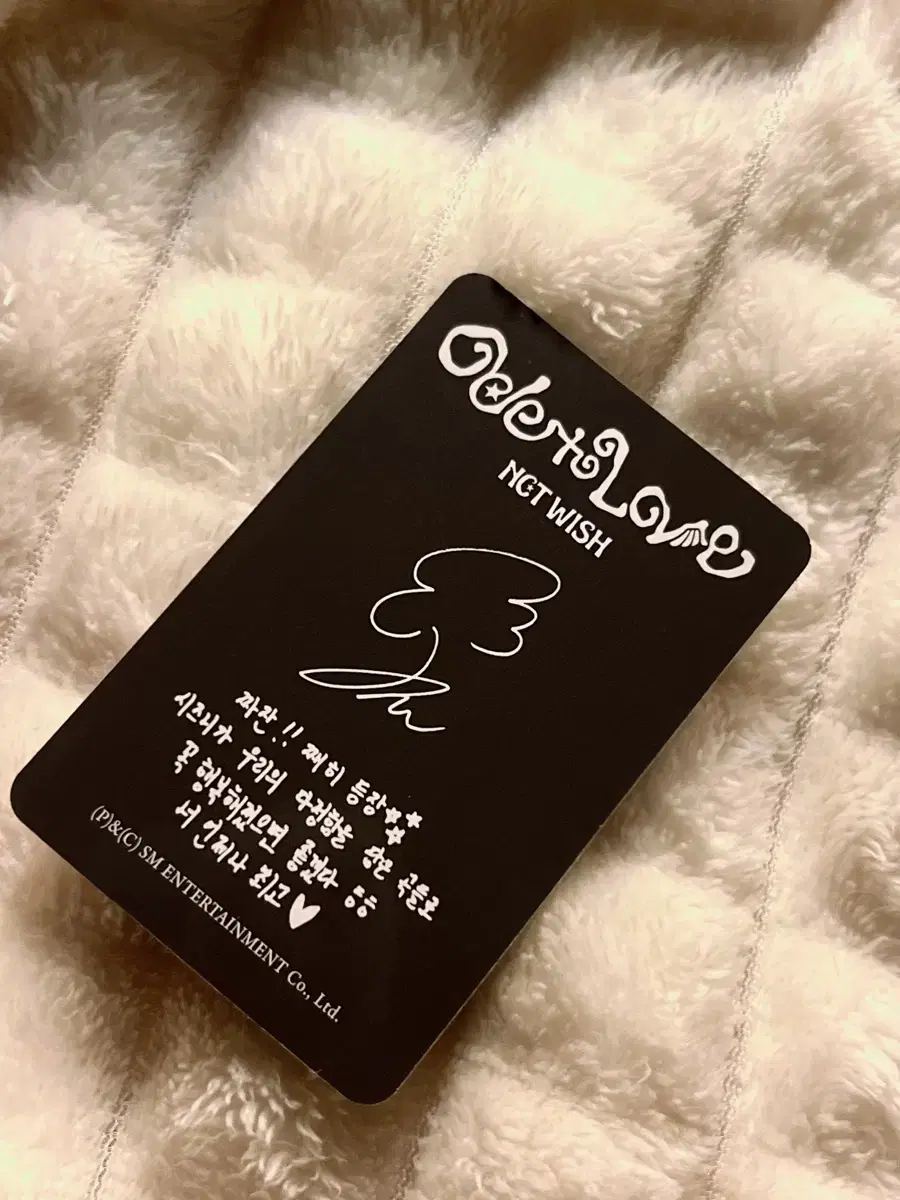 Ode to Love
NCT WISH
짜잔!! 쩨히 등장
시즈니가 우리의 다정함을 담은 곡들로
꼭 행복해졌으면 좋겠다 ㅎㅎ
시 언제나 최고♥
(P)&(C) SM ENTERTAINMENT Co., Ltd.